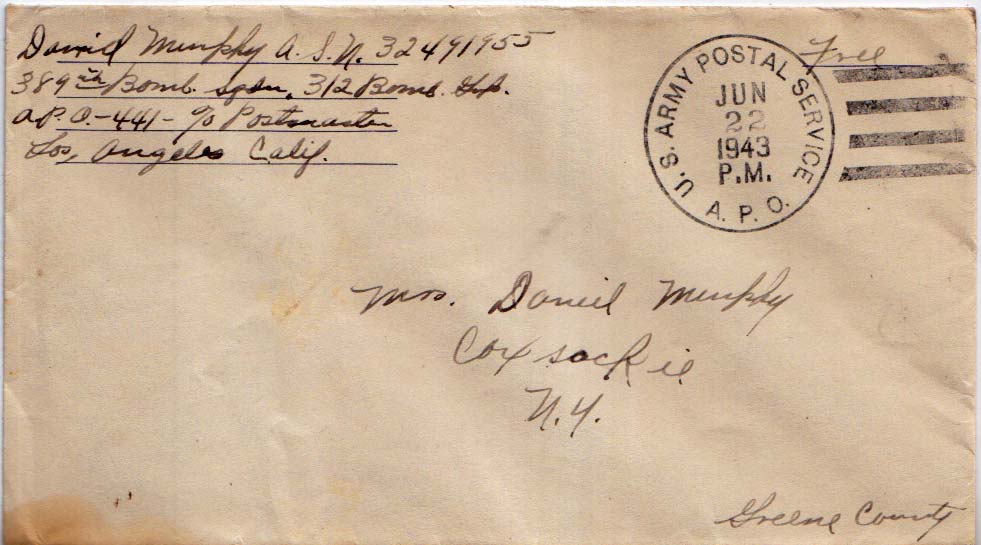 Daniel Murphy A.S.N. 32491955
389th Bomb. sqdn, 312 Bomb. Gp.
A.P.O.-441- c/o Postmaster
Los, Angeles Calif.
Free
U.S. ARMY POSTAL SERVICE
JUN
22
1943
P.M.
A.P.O.
Mrs. Daniel Murphy
Coxsackie
N.Y.
Greene County